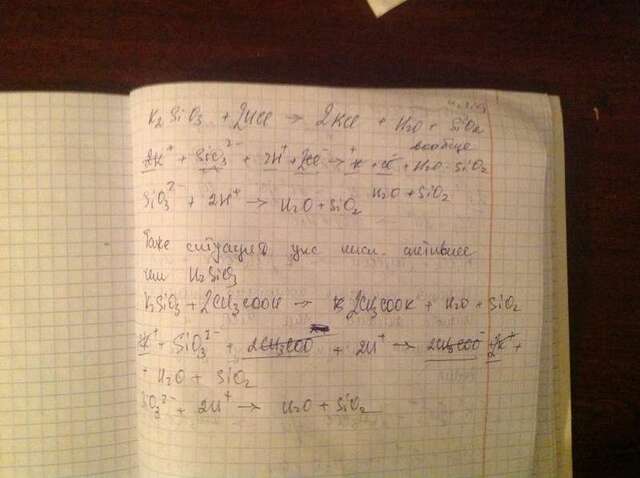 H₂SiO₃
K₂SiO₃ + 2HCl → 2KCl + H₂O + SiO₂
вообще
2K⁺ + SiO₃²⁻ + 2H⁺ + 2Cl⁻ → K⁺ + Cl⁻ + H₂O + SiO₂
SiO₃²⁻ + 2H⁺ → H₂O + SiO₂ H₂O + SiO₂
Таже ситуация укс кисл. активнее
чем H₂SiO₃
K₂SiO₃ + 2CH₃COOH → 2CH₃COOK + H₂O + SiO₂
K⁺ + SiO₃²⁻ + 2CH₃COO + 2H⁺ → 2CH₃COO⁻ 2K⁺ +
+ H₂O + SiO₂
SiO₃²⁻ + 2H⁺ → H₂O + SiO₂